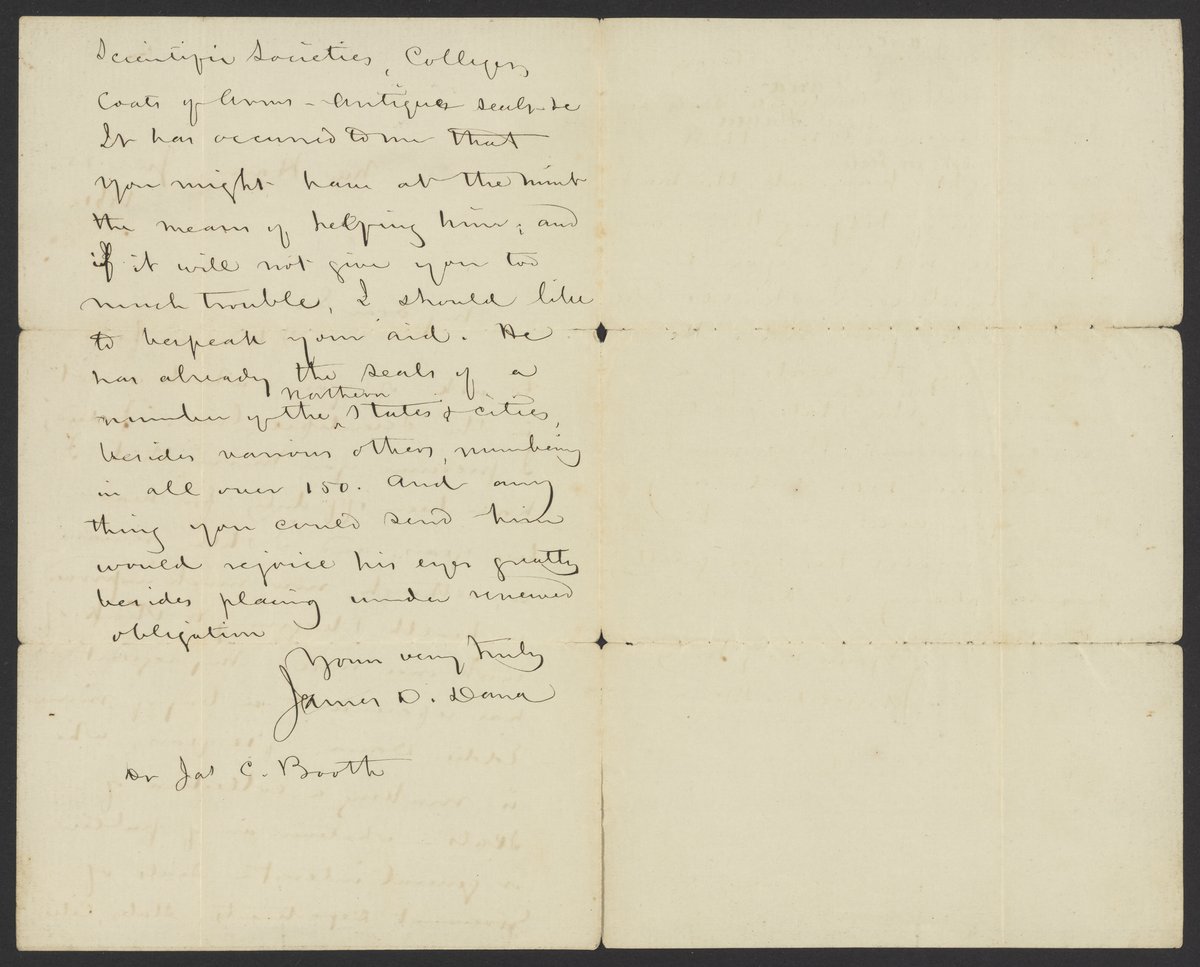 Scientific Societies, Colleges,
Coats of Arms - Antique seals &c
It has occurred to me that
you might have at the mint
the means of helping him; and
if it will not give you too
much trouble, I should like
to bespeak your aid. He
has already the seals of a
number of the northern States & cities,
besides various others, numbering
in all over 150. And any
thing you could send him
would rejoice his eyes greatly
besides placing under renewed
obligation
Yours very truly
James D. Dana
Dr Jas C. Booth